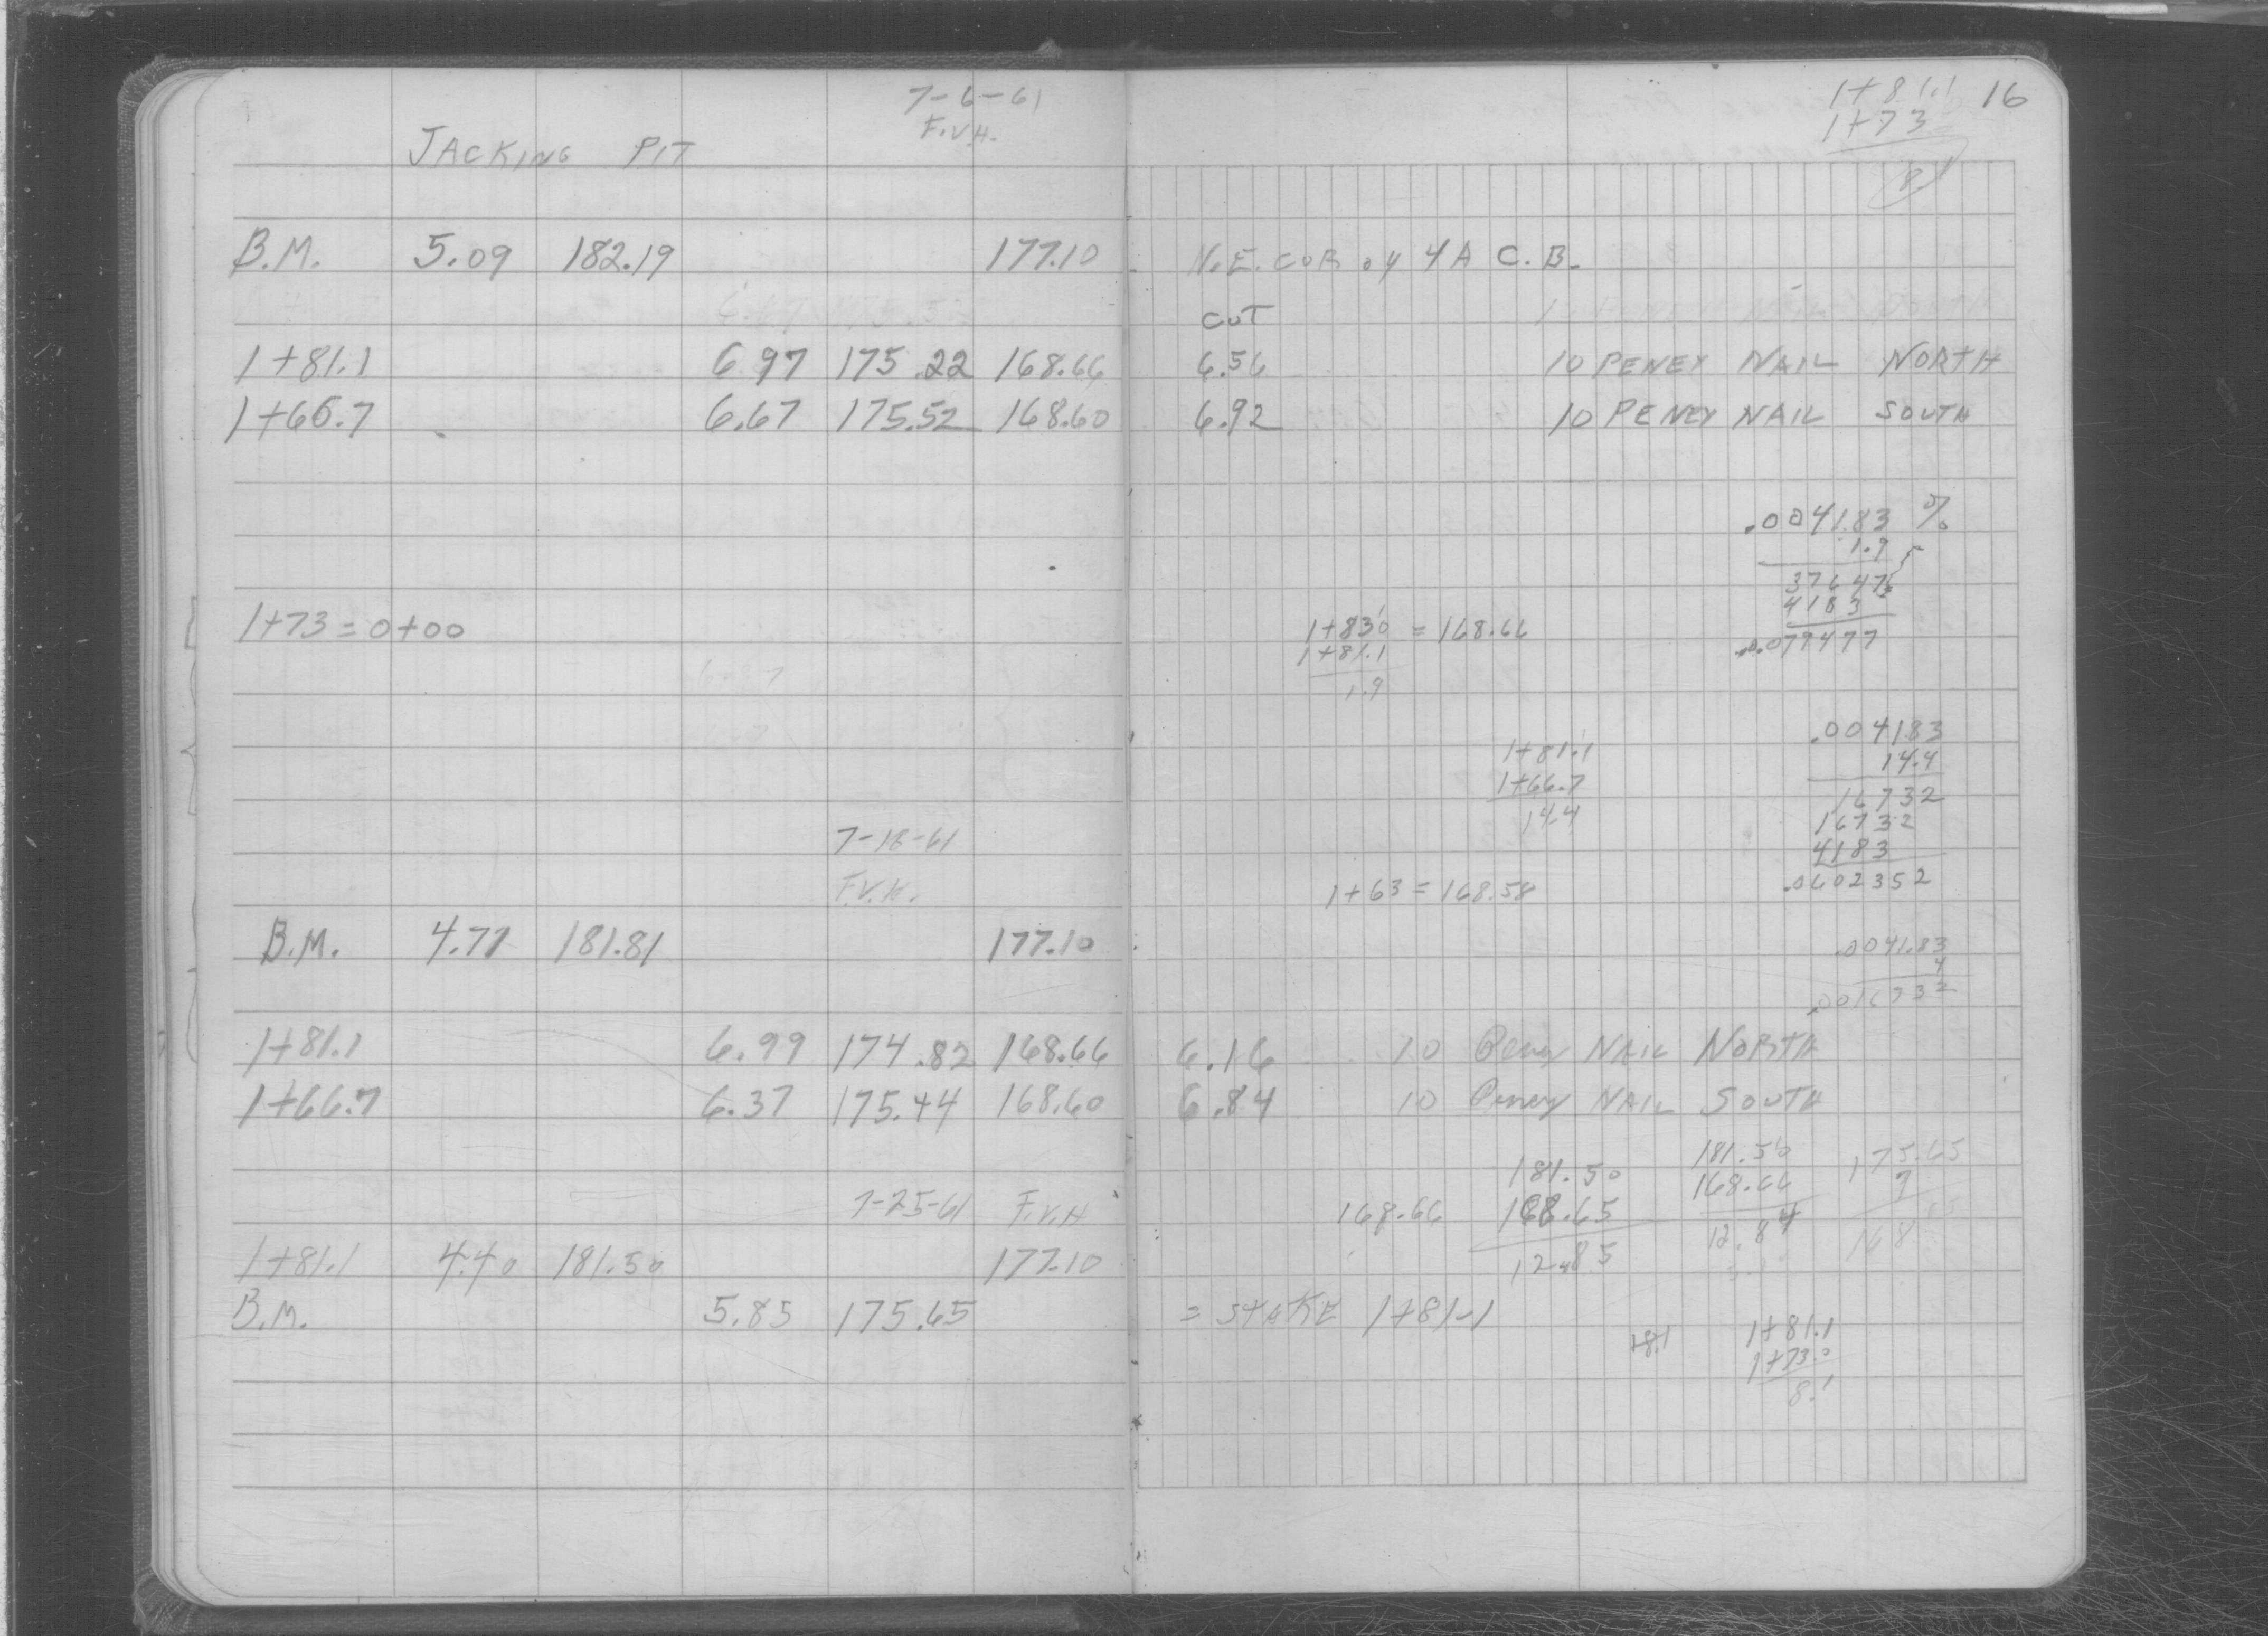 7-6-61
F.V.H.
JACKING PIT
B.M. 5.09 182.19 177.10
1+81.1 6.97 175.22 168.66
1+66.7 6.67 175.52 168.60
1+73 = 0+00
7-18-61
F.V.H.
B.M. 4.71 181.81 177.10
1+81.1 6.99 174.82 168.66
1+66.7 6.37 175.44 168.60
7-25-61 F.V.H
1+81.1 4.40 181.50 177.10
B.M. 5.85 175.65
1+81.1 16
1+73
8.1
N.E. COR of 4A C.B.
CUT
6.56 10 PENEY NAIL NORTH
6.92 10 PENEY NAIL SOUTH
.004183 %
1.9
37647
4183
.0079477
1+83.0 = 168.66
1+81.1
1.9
1+81.1
1+66.7
14.4
.004183
14.4
16732
16732
4183
.0602352
1+63 = 168.58
.004183
4
.0016732
6.16 10 Peney NAIL NORTH
6.84 10 Peney NAIL SOUTH
168.66
181.50
168.65
12.85
181.50
168.66
12.84
175.65
7
168
= STAKE 1+81.1
+8.1
1+81.1
1+73.0
8.1